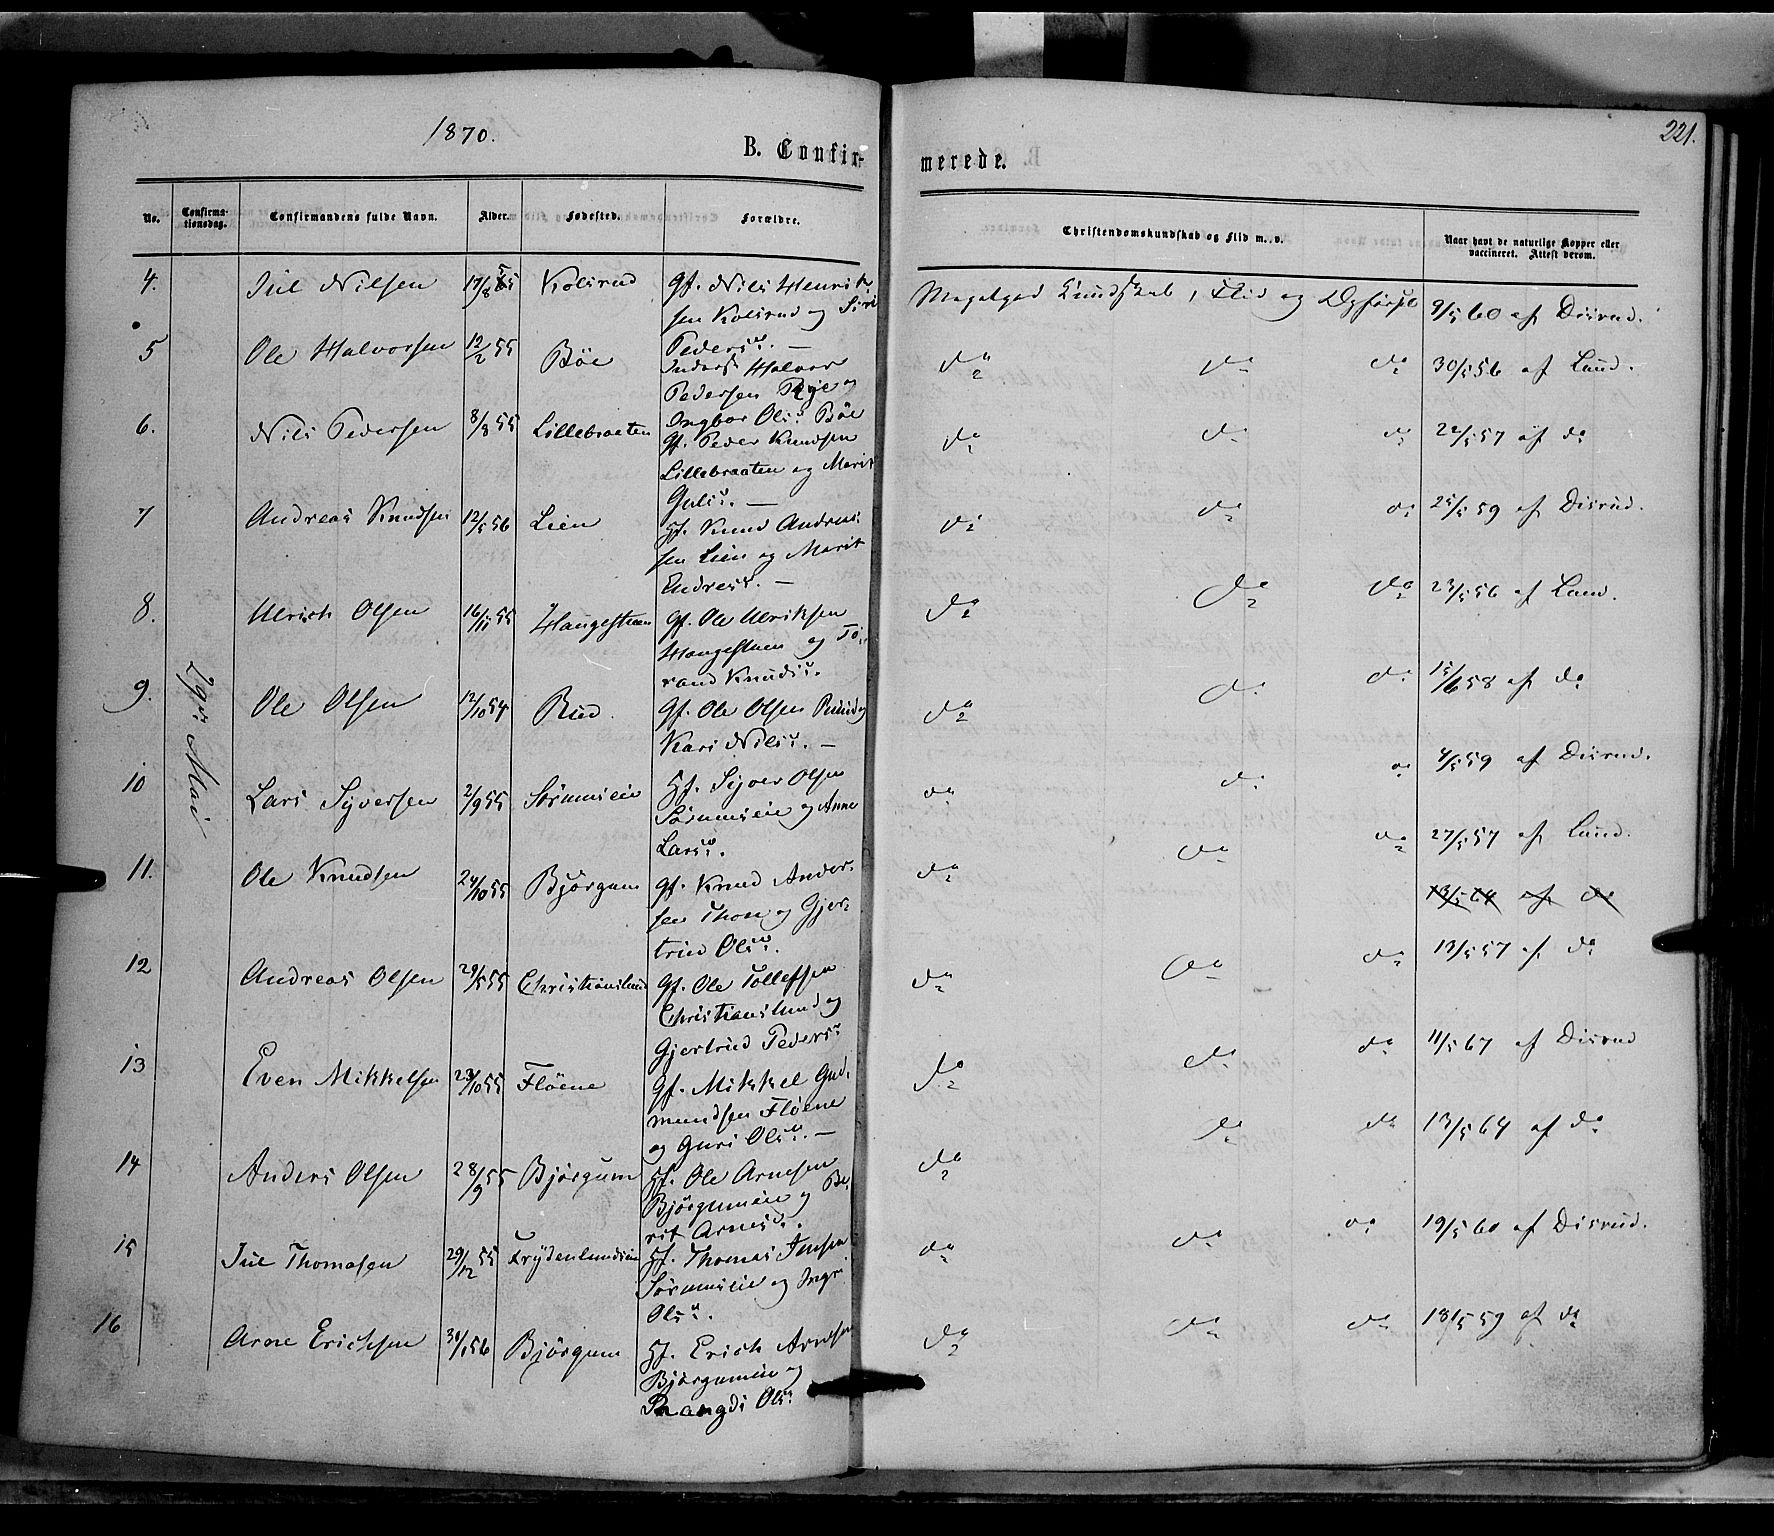 1870.
221.
B. Confir-
merede.
No.
Confirma-
tionsdag.
Confirmandens fulde Navn.
Alder.
Fødested.
Forældre.
Christendomskundskab og Flid m. v.
Naar havt de naturlige Kopper eller
vaccineret. Attest derom.
29de Mai
4. Jul Nilsen 17/8 55 Kolsrud Gf. Nils Henrik-
sen Kolsrud og Siri
Pedersd. —
Megetgod Kundskab, Flid og Opførsel 9/5 60 af Disrud.
5 Ole Halvorsen 12/2 55 Bøe Inderst Halvor
Pedersen Rye og
Ingbor Olsd. Bøe
do do do 30/5 56 af Lund.
6. Nils Pedersen 8/8 55 Lillebraaten Gf. Peder Knudsen
Lillebraaten og Marit
Gulsd. —
do do do 22/5 57 af do
7 Andreas Knudsen 12/5 56 Lien Hf. Knud Andreas-
sen Lien og Marit
Endresd. —
do do do 25/5 59 af Disrud.
8. Ulrich Olsen 16/11 55 Haugestuen Gf. Ole Ulriksen
Haugestuen og To-
rand Knudsd.
do do do 23/5 56 af Lund.
9. Ole Olsen 12/10 54 Rud Gf. Ole Olsen Rud og
Kari Nilsd. —
do do do 15/6 58 af do
10 Lars Syversen 2/9 55 Sørumseie Hf. Syver Olsen
Sørumseie og Anne
Larsd.
do do do 4/5 59 af Disrud.
11. Ole Knudsen 24/10 55 Bjørgum Gf. Knud Ander-
sen Thon og Gjer-
trud Olsd.
do do do 27/5 57 af Lund.
13/5 64 af do
12 Andreas Olsen 29/5 55 Christianslund Gf. Ole Tollefsen
Christianslund og
Gjertrud Pedersd
do do do 13/5 57 af do
13 Even Mikkelsen 23/10 55 Fløene Gf. Mikkel Gud-
mundsen Fløene
og Guri Olsd. —
do do do 11/5 67 af Disrud
14 Anders Olsen 28/9 55 Bjørgum Hf. Ole Arnesen
Bjørgumeie og Be-
rit Arnesd.
do do do 13/5 64 af do
15 Jul Thomasen 29/12 55 Frydenlundseie Hf. Thomas Jensen
Sørumseie og Ingri
Olsd.
do do do 19/5 60 af Disrud.
16 Arne Erichsen 30/1 56 Bjørgum Hf. Erich Arnesen
Bjørgumeie og
Rangdi Olsd
do do do 18/5 59 af do